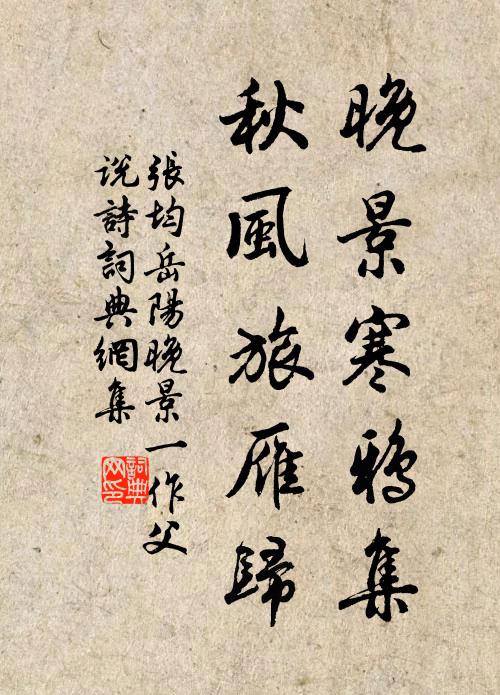 晚景寒鴉集
秋風旅雁歸
張均岳陽晚景一作父
説詩詞典網集
詞典
网印